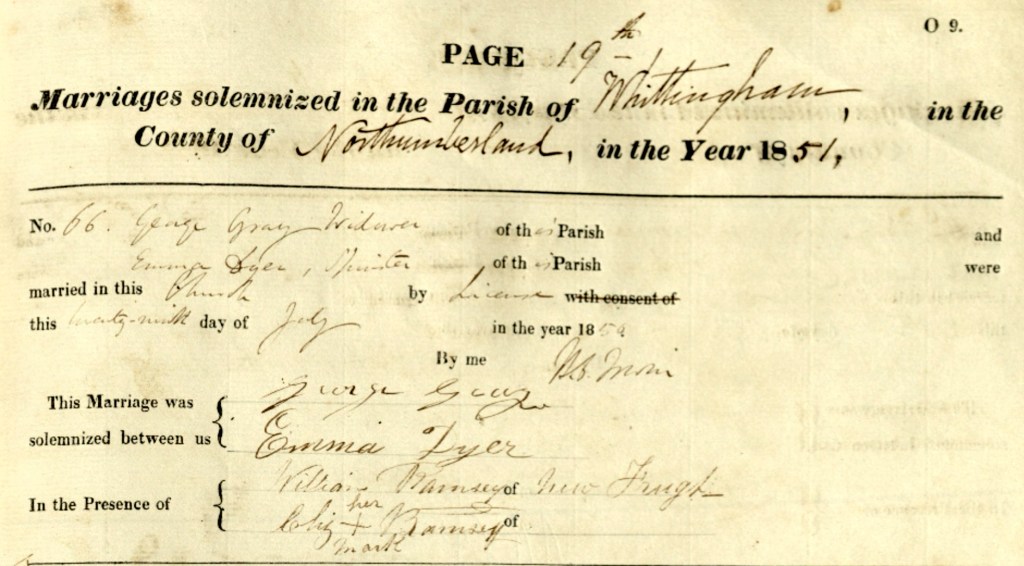 O 9.
PAGE 19th
Marriages solemnized in the Parish of Whittingham, in the
County of Northumberland, in the Year 1851,
No. 66. George Gray Widower of this Parish and
Emma Dyer, Spinster of this Parish were
married in this Church by License with consent of
this twenty-ninth day of July in the year 185
By me
This Marriage was George Gray
solemnized between us Emma Dyer
In the Presence of William Ramsey of New
her
Eliz X Ramsey of
mark